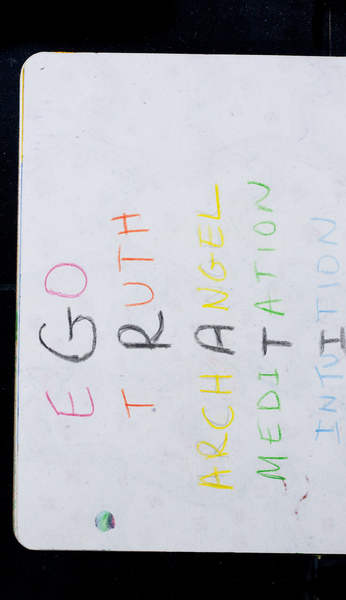 EGO
TRUTH
ARCHANGEL
MEDITATION
INTUITION